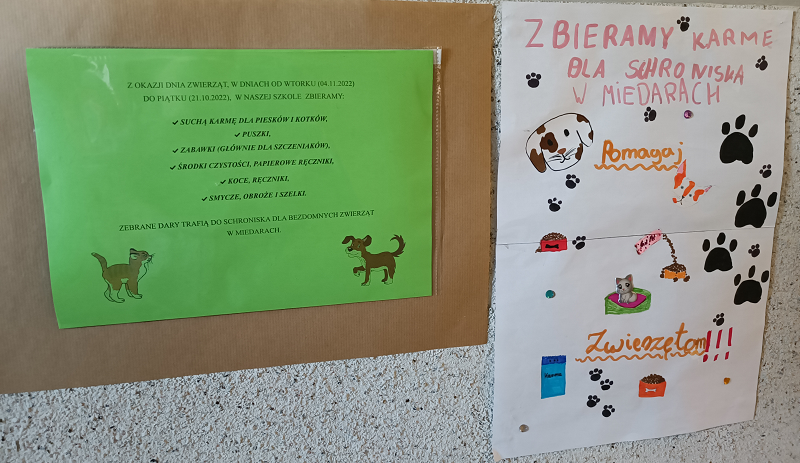 Z OKAZJI DNIA ZWIERZĄT, W DNIACH OD WTORKU (04.11.2022)
DO PIĄTKU (21.10.2022), W NASZEJ SZKOLE ZBIERAMY:
✓ SUCHĄ KARMĘ DLA PIESKÓW I KOTKÓW,
✓ PUSZKI,
✓ ZABAWKI (GŁÓWNIE DLA SZCZENIAKÓW),
✓ ŚRODKI CZYSTOŚCI, PAPIEROWE RĘCZNIKI,
✓ KOCE, RĘCZNIKI,
✓ SMYCZE, OBROŻE I SZELKI.
ZEBRANE DARY TRAFIĄ DO SCHRONISKA DLA BEZDOMNYCH ZWIERZĄT
W MIEDARACH.
ZBIERAMY KARMĘ
DLA SCHRONISKA
W MIEDARACH
Pomagaj
Zwierzętom!!!